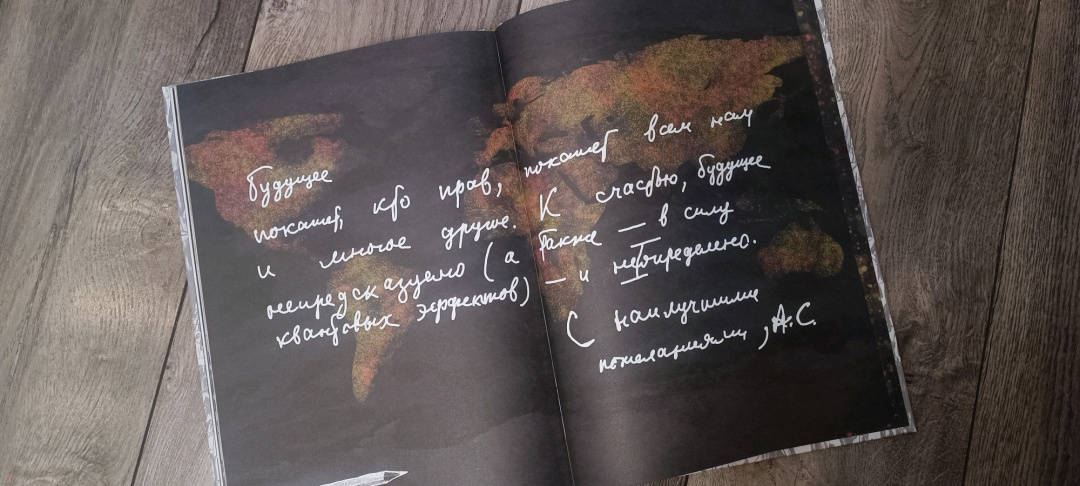 Будущее
покажет, кто прав, покажет всем нам
и многое другое. К счастью, будущее
непредсказуемо (а также — в силу
квантовых эффектов) — и не определено.
С наилучшими
пожеланиями, А.С.